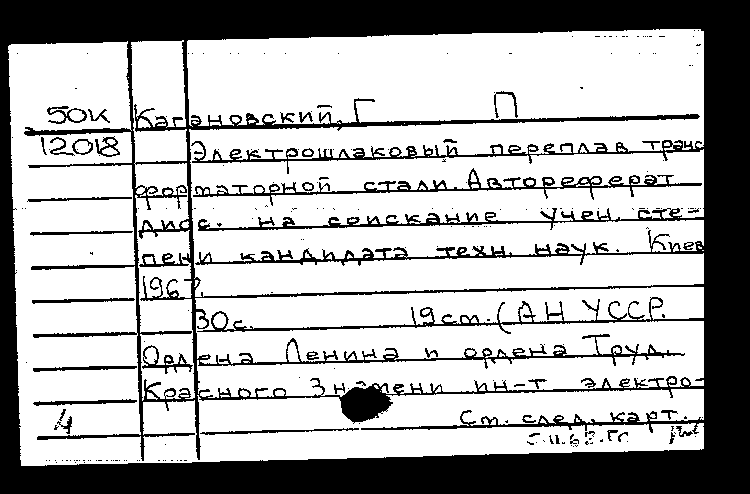 50К Кагановский, Г П
12018 Электрошлаковый переплав транс
форматорной стали. Автореферат
дисс. на соискание учен. сте-
пени кандидата техн. наук. Киев
1967.
30с. 19см. (АН УССР.
Ордена Ленина и ордена Труд.
Красного Знамени ин-т электро-
4 См. след. карт.